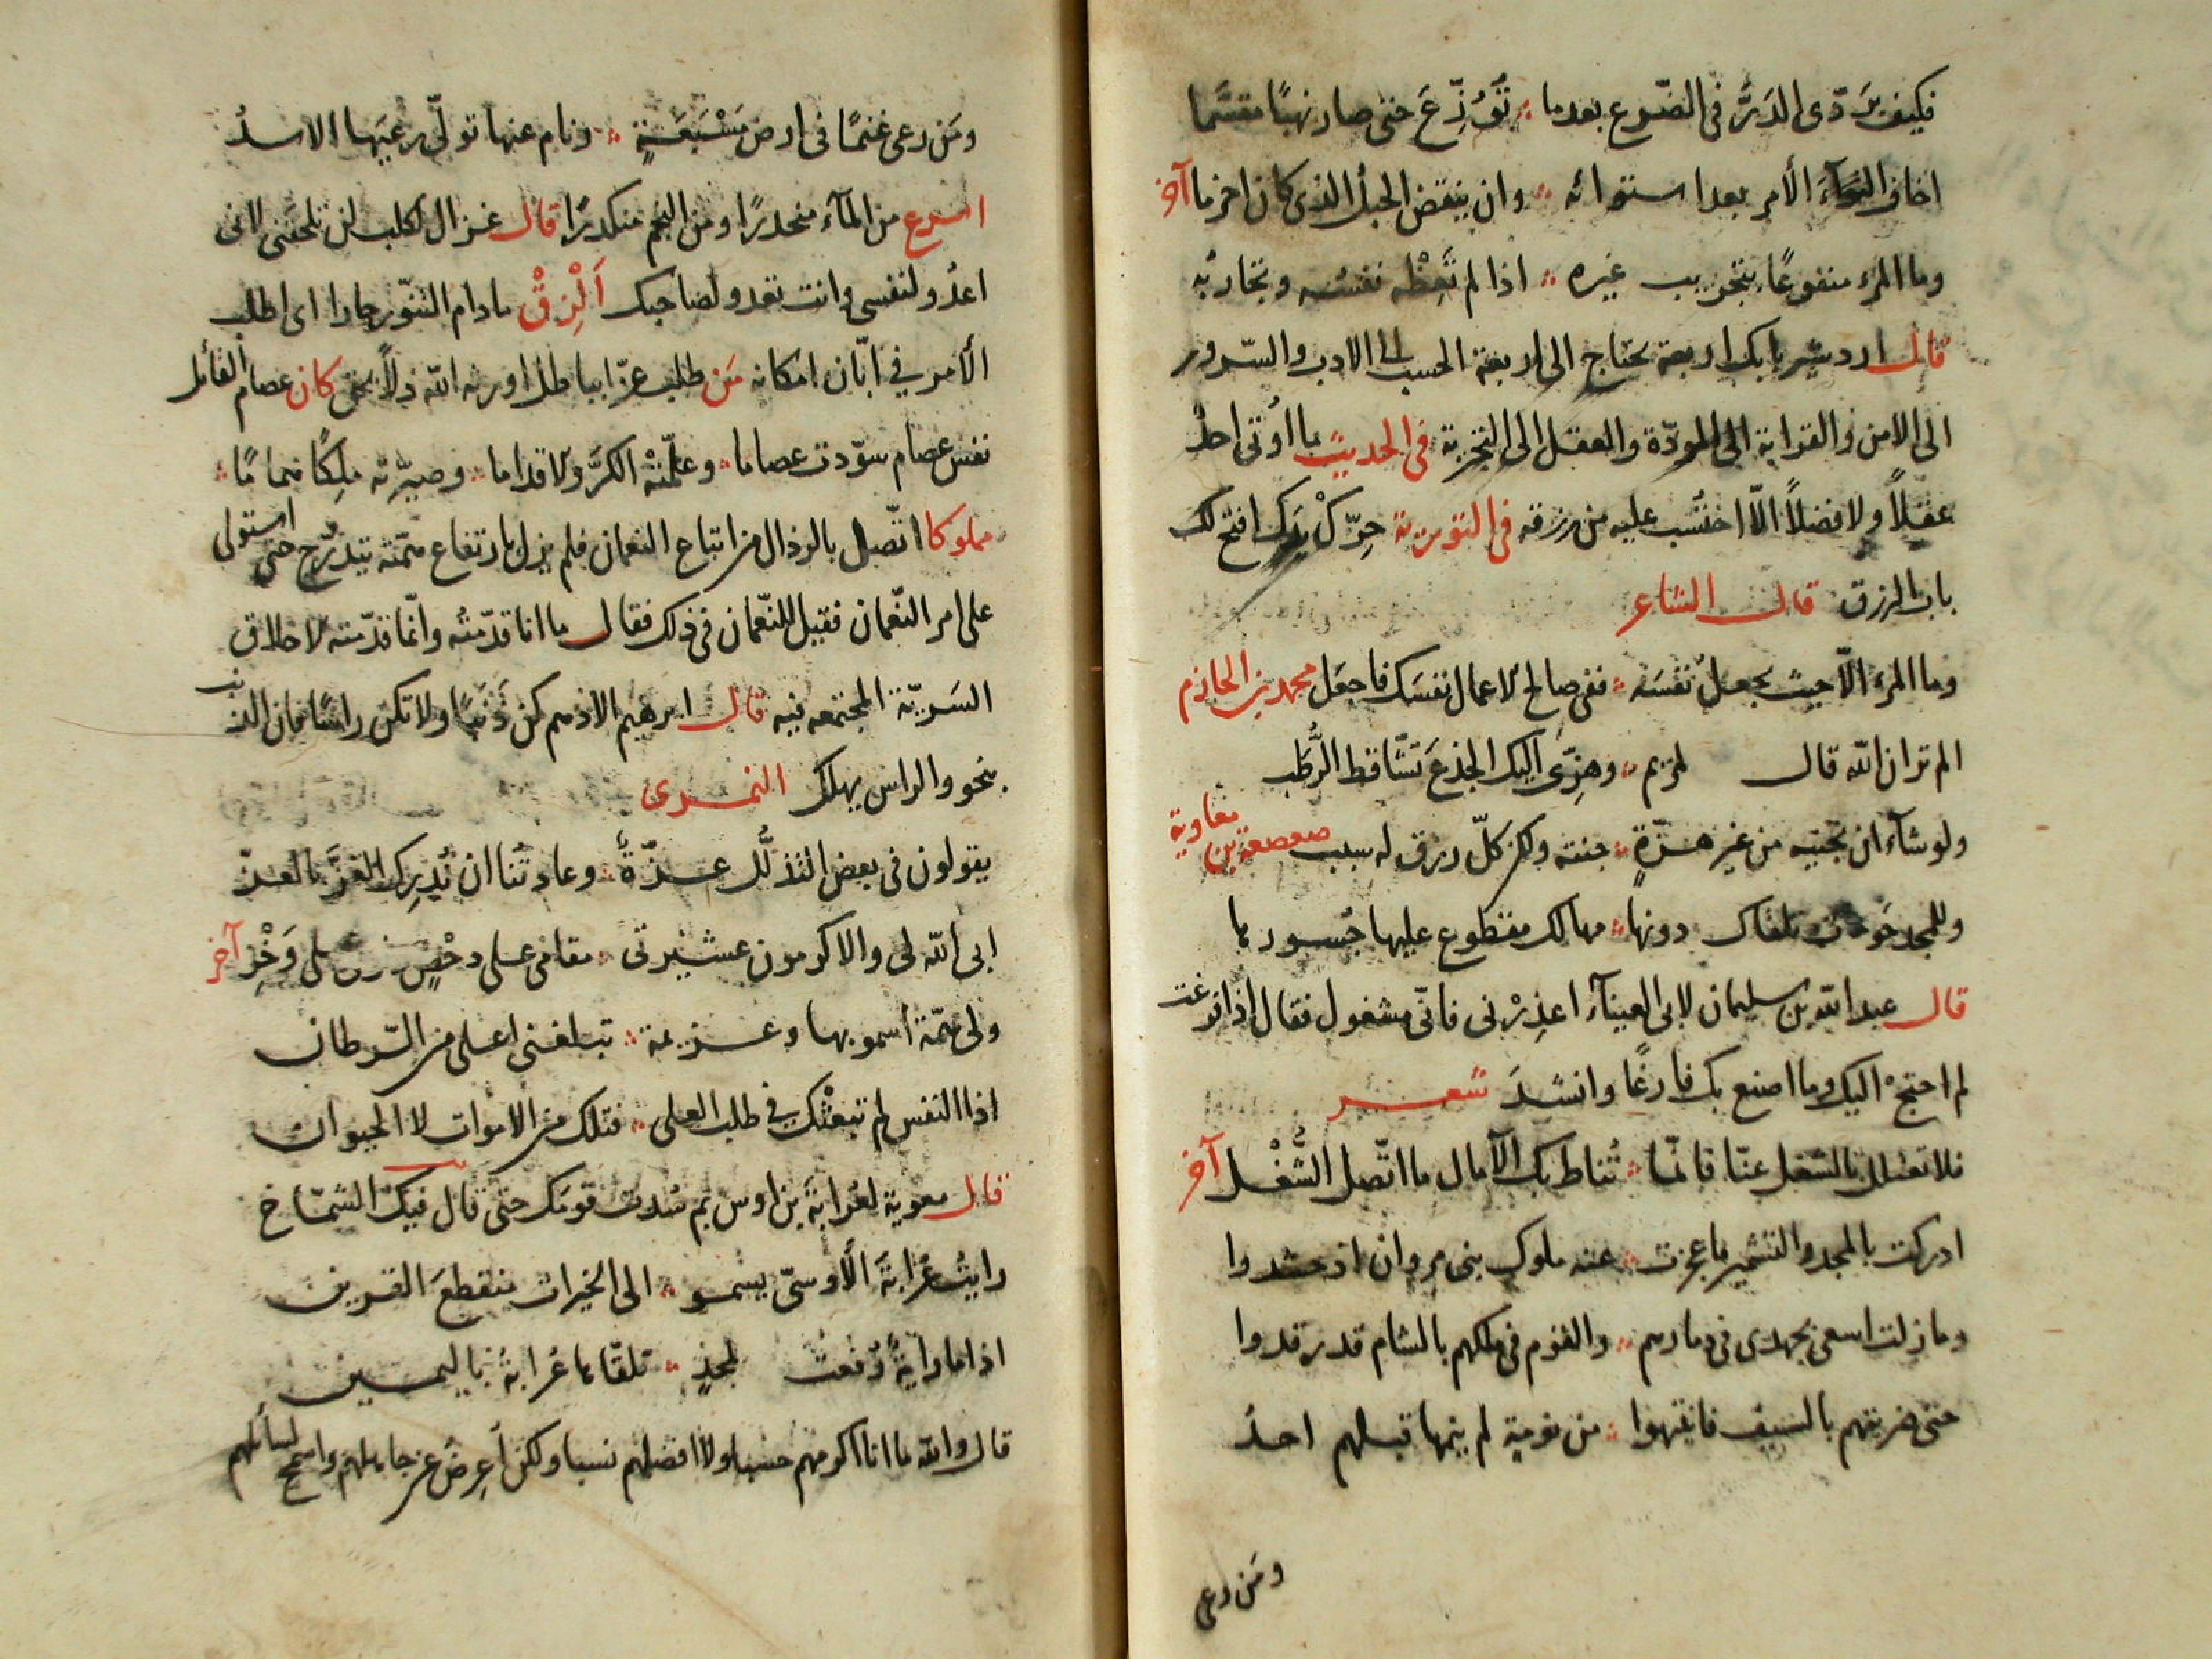 فكيف يردّى الدَرَّ فى الضّرع بعدما ؞ تُوُزِّعَ حتى صار نهبًا مقسّما
اخاف التوآءَ الأمر بعد استوائه ؞ وان ينقض الحبل الذى كان اخرما آخر
وما المرء منفوعًا بتجريب غيره ؞ اذا لم تَعِظْه نفسُه وتجاربُه
قال اردشير بابك اربعة تحتاج الى اربعة الحسب الى الادب والسّرور
الى الامن والقرابة الى المودّة والعقل الى التجربة فى الحديث ما اُوتى احدٌ
عقلاً ولا فضلاً الاّ احتُسب عليه من رزقه فى التورية حرّكْ يدك افتح لك
باب الرزق قال الشاعر
وما المرء الاّ حيث يجعل نفسَه ؞ ففى صالح الاعمال نفسَك فاجعل محمد بن الحازم
الم تر ان الله قال لمريم ؞ وهزّى اليك الجذعَ تَسّاقط الرُّطَب
ولو شآء ان تجنيه من غير هزّةٍ ؞ جنته ولكن كلّ رزق له سبب صعصعة بن معاوية
وللمجد حَوماتٌ تلقاك دونها ؞ مهالك مقطوع عليها جُسورها
قال عبد الله بن سليمان لابى العيناء اعذِرْنى فانّى مشغول فقال اذا فرغت
لم احتجْ اليك وما اصنع بك فارغًا وانشدَ شعر
فلا تعتلل بالشغل عنّا فانّما ؞ تُناط بك الآمال ما اتّصل الشُّغْل آخر
ادركت بالمجد والتشمير ما عجزت ؞ عنه ملوك بنى مروان اذ حشدوا
وما زلت اسعى بجهدى فى دمارهم ؞ والقوم فى ملكهم بالشام قد رقدوا
حتى ضربتهم بالسيف فانتهوا ؞ من نومة لم ينمها قبلهم احدُ
ومَن رعى
ومَن رعى غنمًا فى ارض مَسْبَعَةٍ ؞ ونام عنها تولّى رعيَها الاسدُ
اسرع من المآء منحدرًا ومن النجم منكدرًا قال غزال لكلب لن تلحقنى لانى
اعدُو لنفسى وانت تعدو لصاحبك اَلْزِقْ ما دام التنّور حارا اى اطلب
الأمر في ابّان امكانه مَن طلب عزّا بباطل اورثه الله ذلاًّ بحق كان عصام القائل
نفس عصام سوّدت عصاما ؞ وعلّمتْه الكرَّ والاقداما ؞ وصيّرته مَلِكًا هماما ؞
مملوكا اتّصل بالرذال من اتباع النعمان فلم يزل بارتفاع همّته يتدرّج حتى استولى
على امر النّعمان فقيل للنّعمان فى ذلك فقال ما انا قدّمته وانّما قدّمته لاخلاق
السَريّة المجتمعه فيه قال ابرهيم الادهم كن ذَنَبًا ولا تكن راسًا فان الذنب
ينجو والراس يهلك النمرى
يقولون فى بعض التذلُّل عزّةٌ ؞ وعادتُنا ان نُدرِك العزَّ بالعزّ
ابى الله لى والاكرمون عشيرتى ؞ مقامى على دحْضٍ على وَخْزِ آخر
ولى همّة اسمو بها وعزيمة ؞ تبلغنى اعلى من السّرطان
اذا النفس لم تبعثْك في طلب العلى ؞ فتلك من الاموات لا الحيوان
قال معوية لعُرابةَ بن اوس بم سُدت قومَك حتى قال فيك الشمّاخ
رايتُ عُرابةَ الأوسىّ يسمو ؞ الى الخيرات منقطعَ القرين
اذا ما رايةٌ رُفعت لمجدٍ ؞ تلقّاها عُرابةُ باليمين
قال والله ما انا اكرمهم حسبا ولا افضلهم نسبا ولكن اُعرِضُ عن جاهلهم واسمح لسائلهم